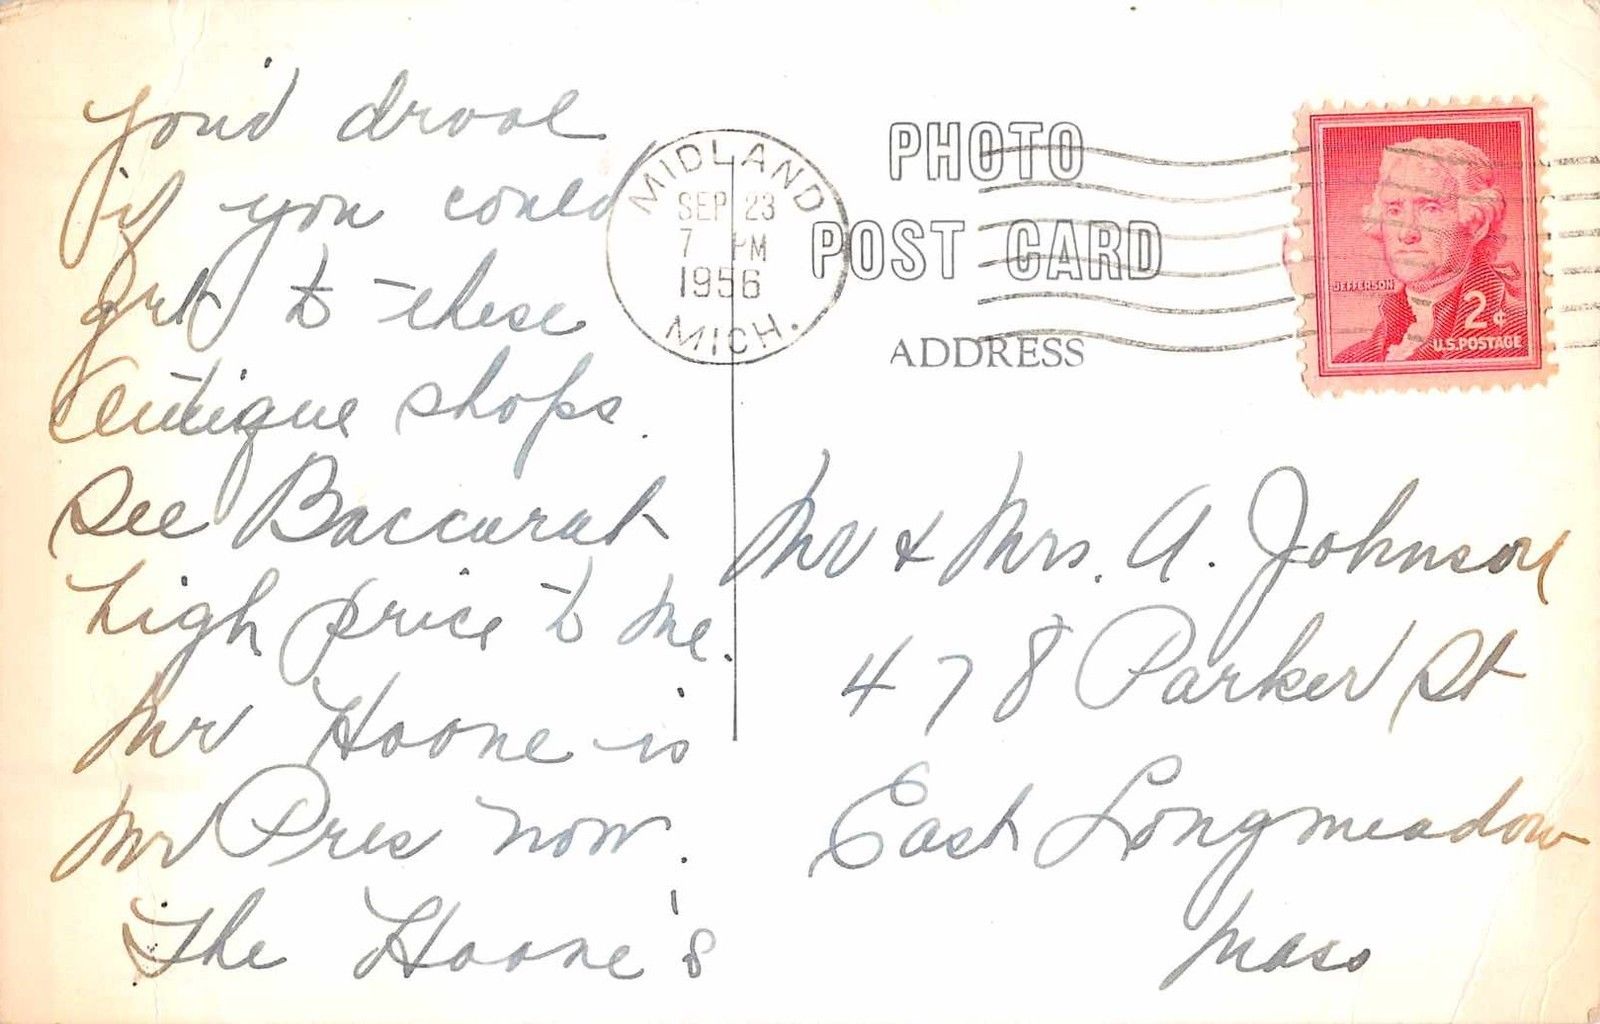 you'd drool
if you could
get to these
Antique shops.
See Baccarat
high price to me.
Mr Hoone is
Mr Pres now.
The Hoone's
MIDLAND
SEP 23
7 PM
1956
MICH.
PHOTO
POST CARD
ADDRESS
JEFFERSON
2¢
U.S. POSTAGE
Mr & Mrs. A. Johnson
478 Parker St
East Longmeadow
Mass